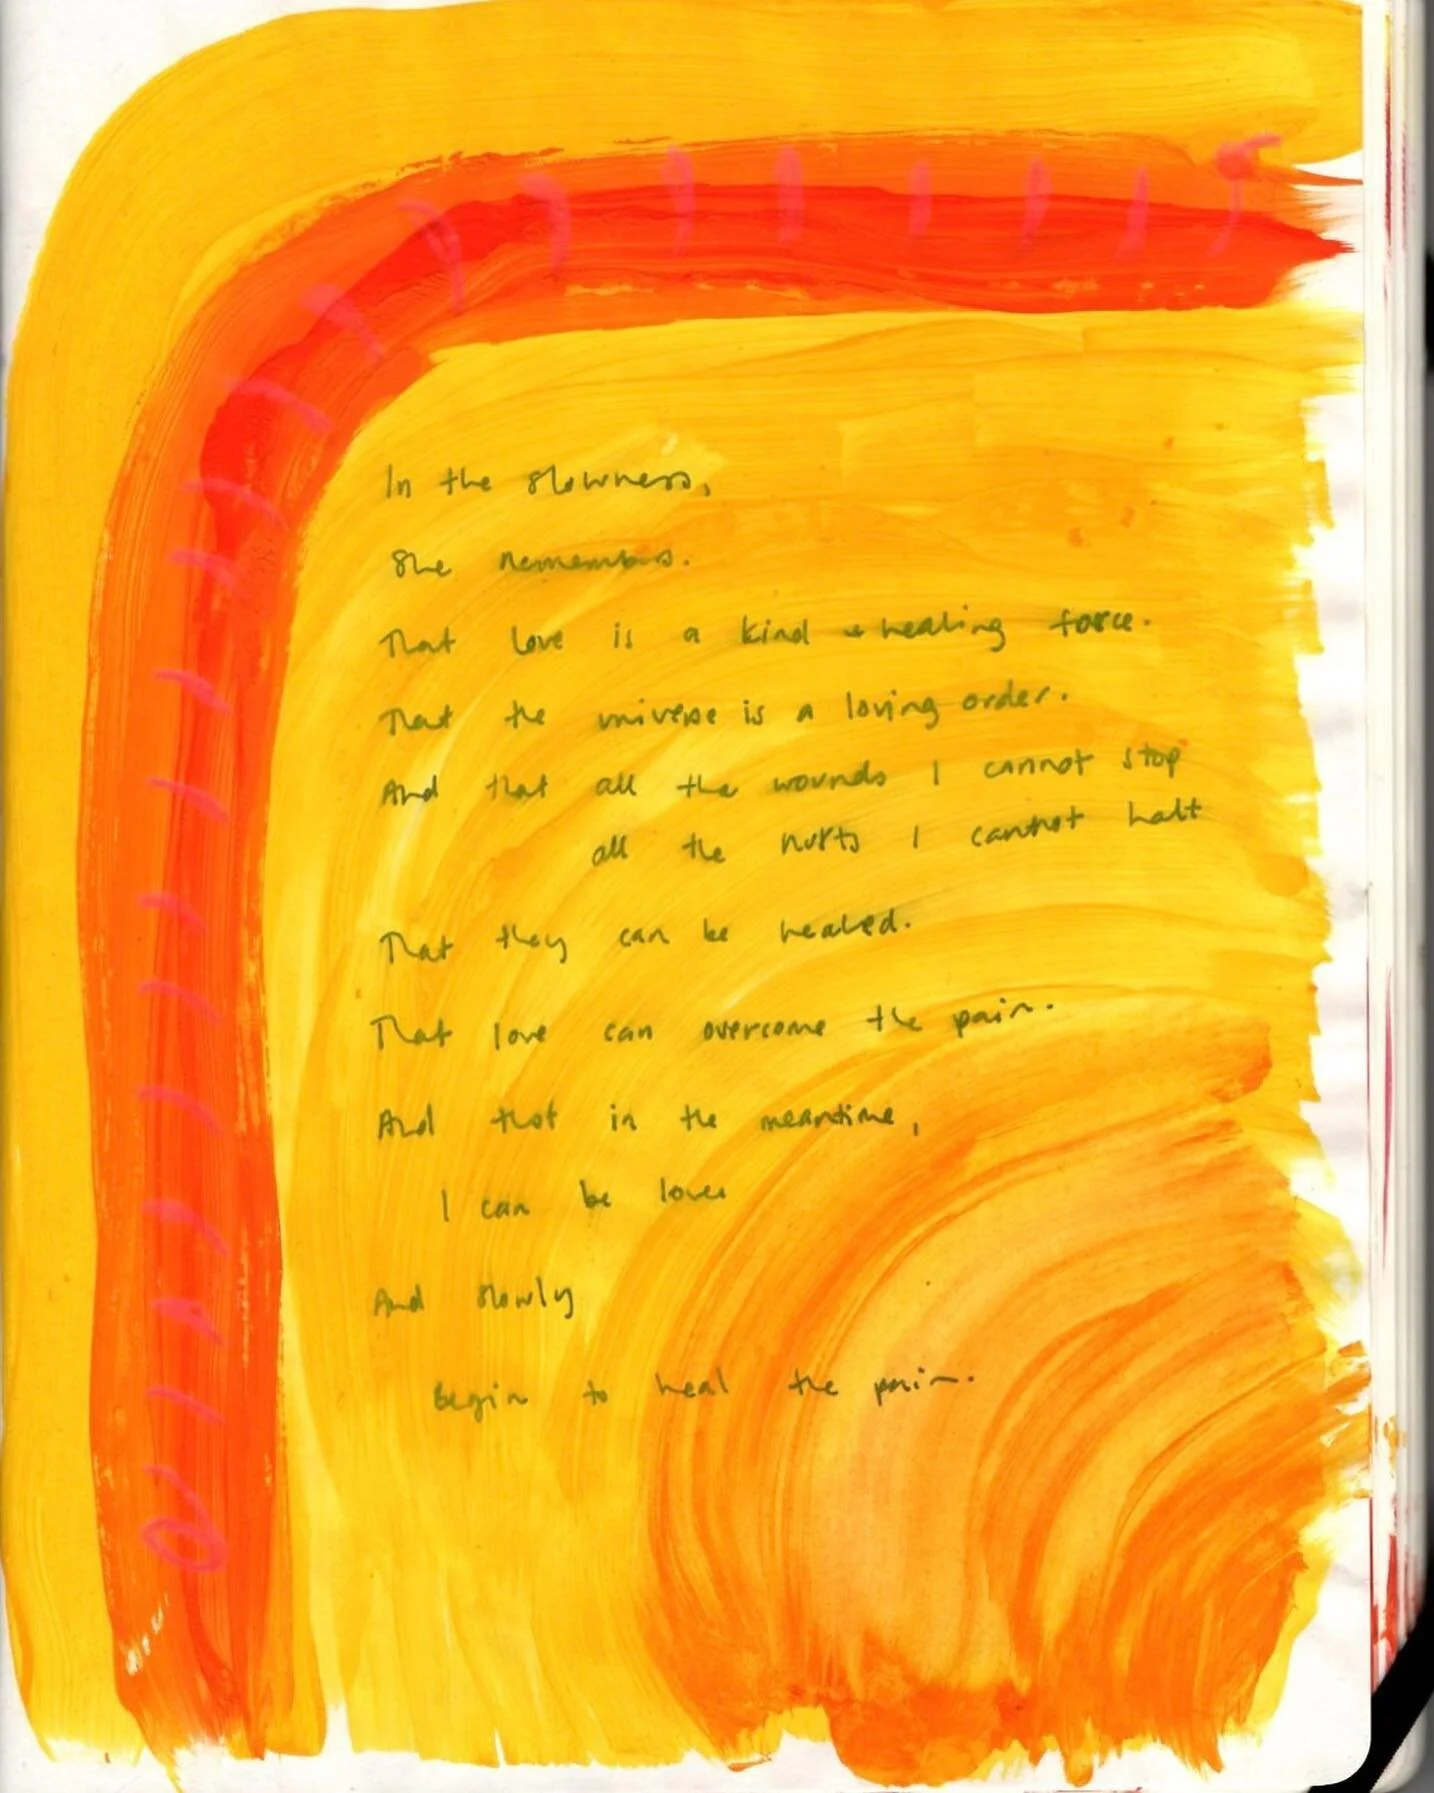 In the slowness,
She remembers.
That love is a kind + healing force.
That the universe is a loving order.
And that all the wounds I cannot stop
all the hurts I cannot halt
That they can be healed.
That love can overcome the pain.
And that in the meantime,
I can be love
And slowly
Begin to heal the pain.